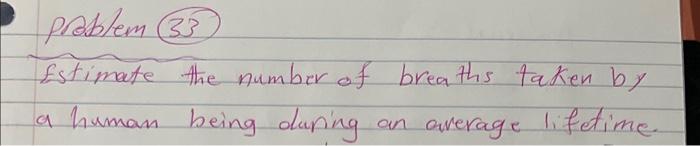 problem 33
Estimate the number of breaths taken by
a human being during an average lifetime.